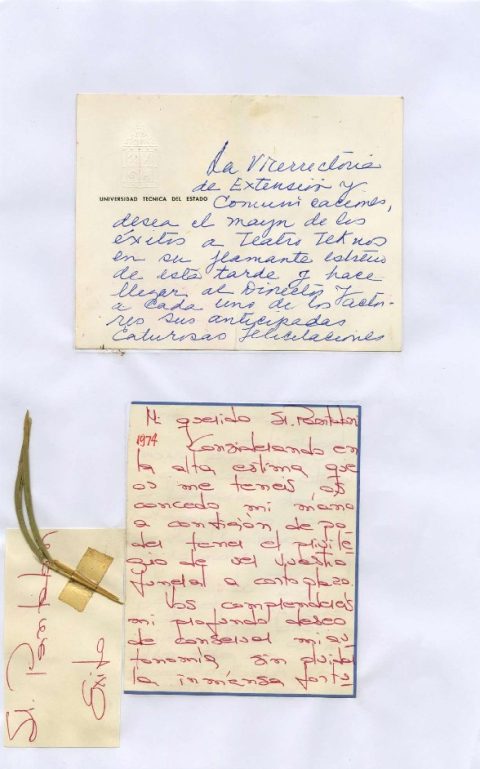 UNIVERSIDAD TECNICA DEL ESTADO
La Vicerrectoria
de Extensión y
Comunicaciones,
desea el mayor de los
éxitos a Teatro Teknos
en su flamante estreno
de esta tarde y hace
llegar al Director y
a cada uno de los acto-
res sus anticipadas
calurosas felicitaciones
Mi querido St. Pantaleón
1974
Considerando en
la alta estima que
os me teneis os
concedo mi mano
a condición de po
der tener el privile
gio de ser vuestro
funeral a corto plazo.
Vos comprendereis
mi profundo deseo
de conservar mi au
tonomía sin
la inmensa fortu
St. Pantaleón
Exito